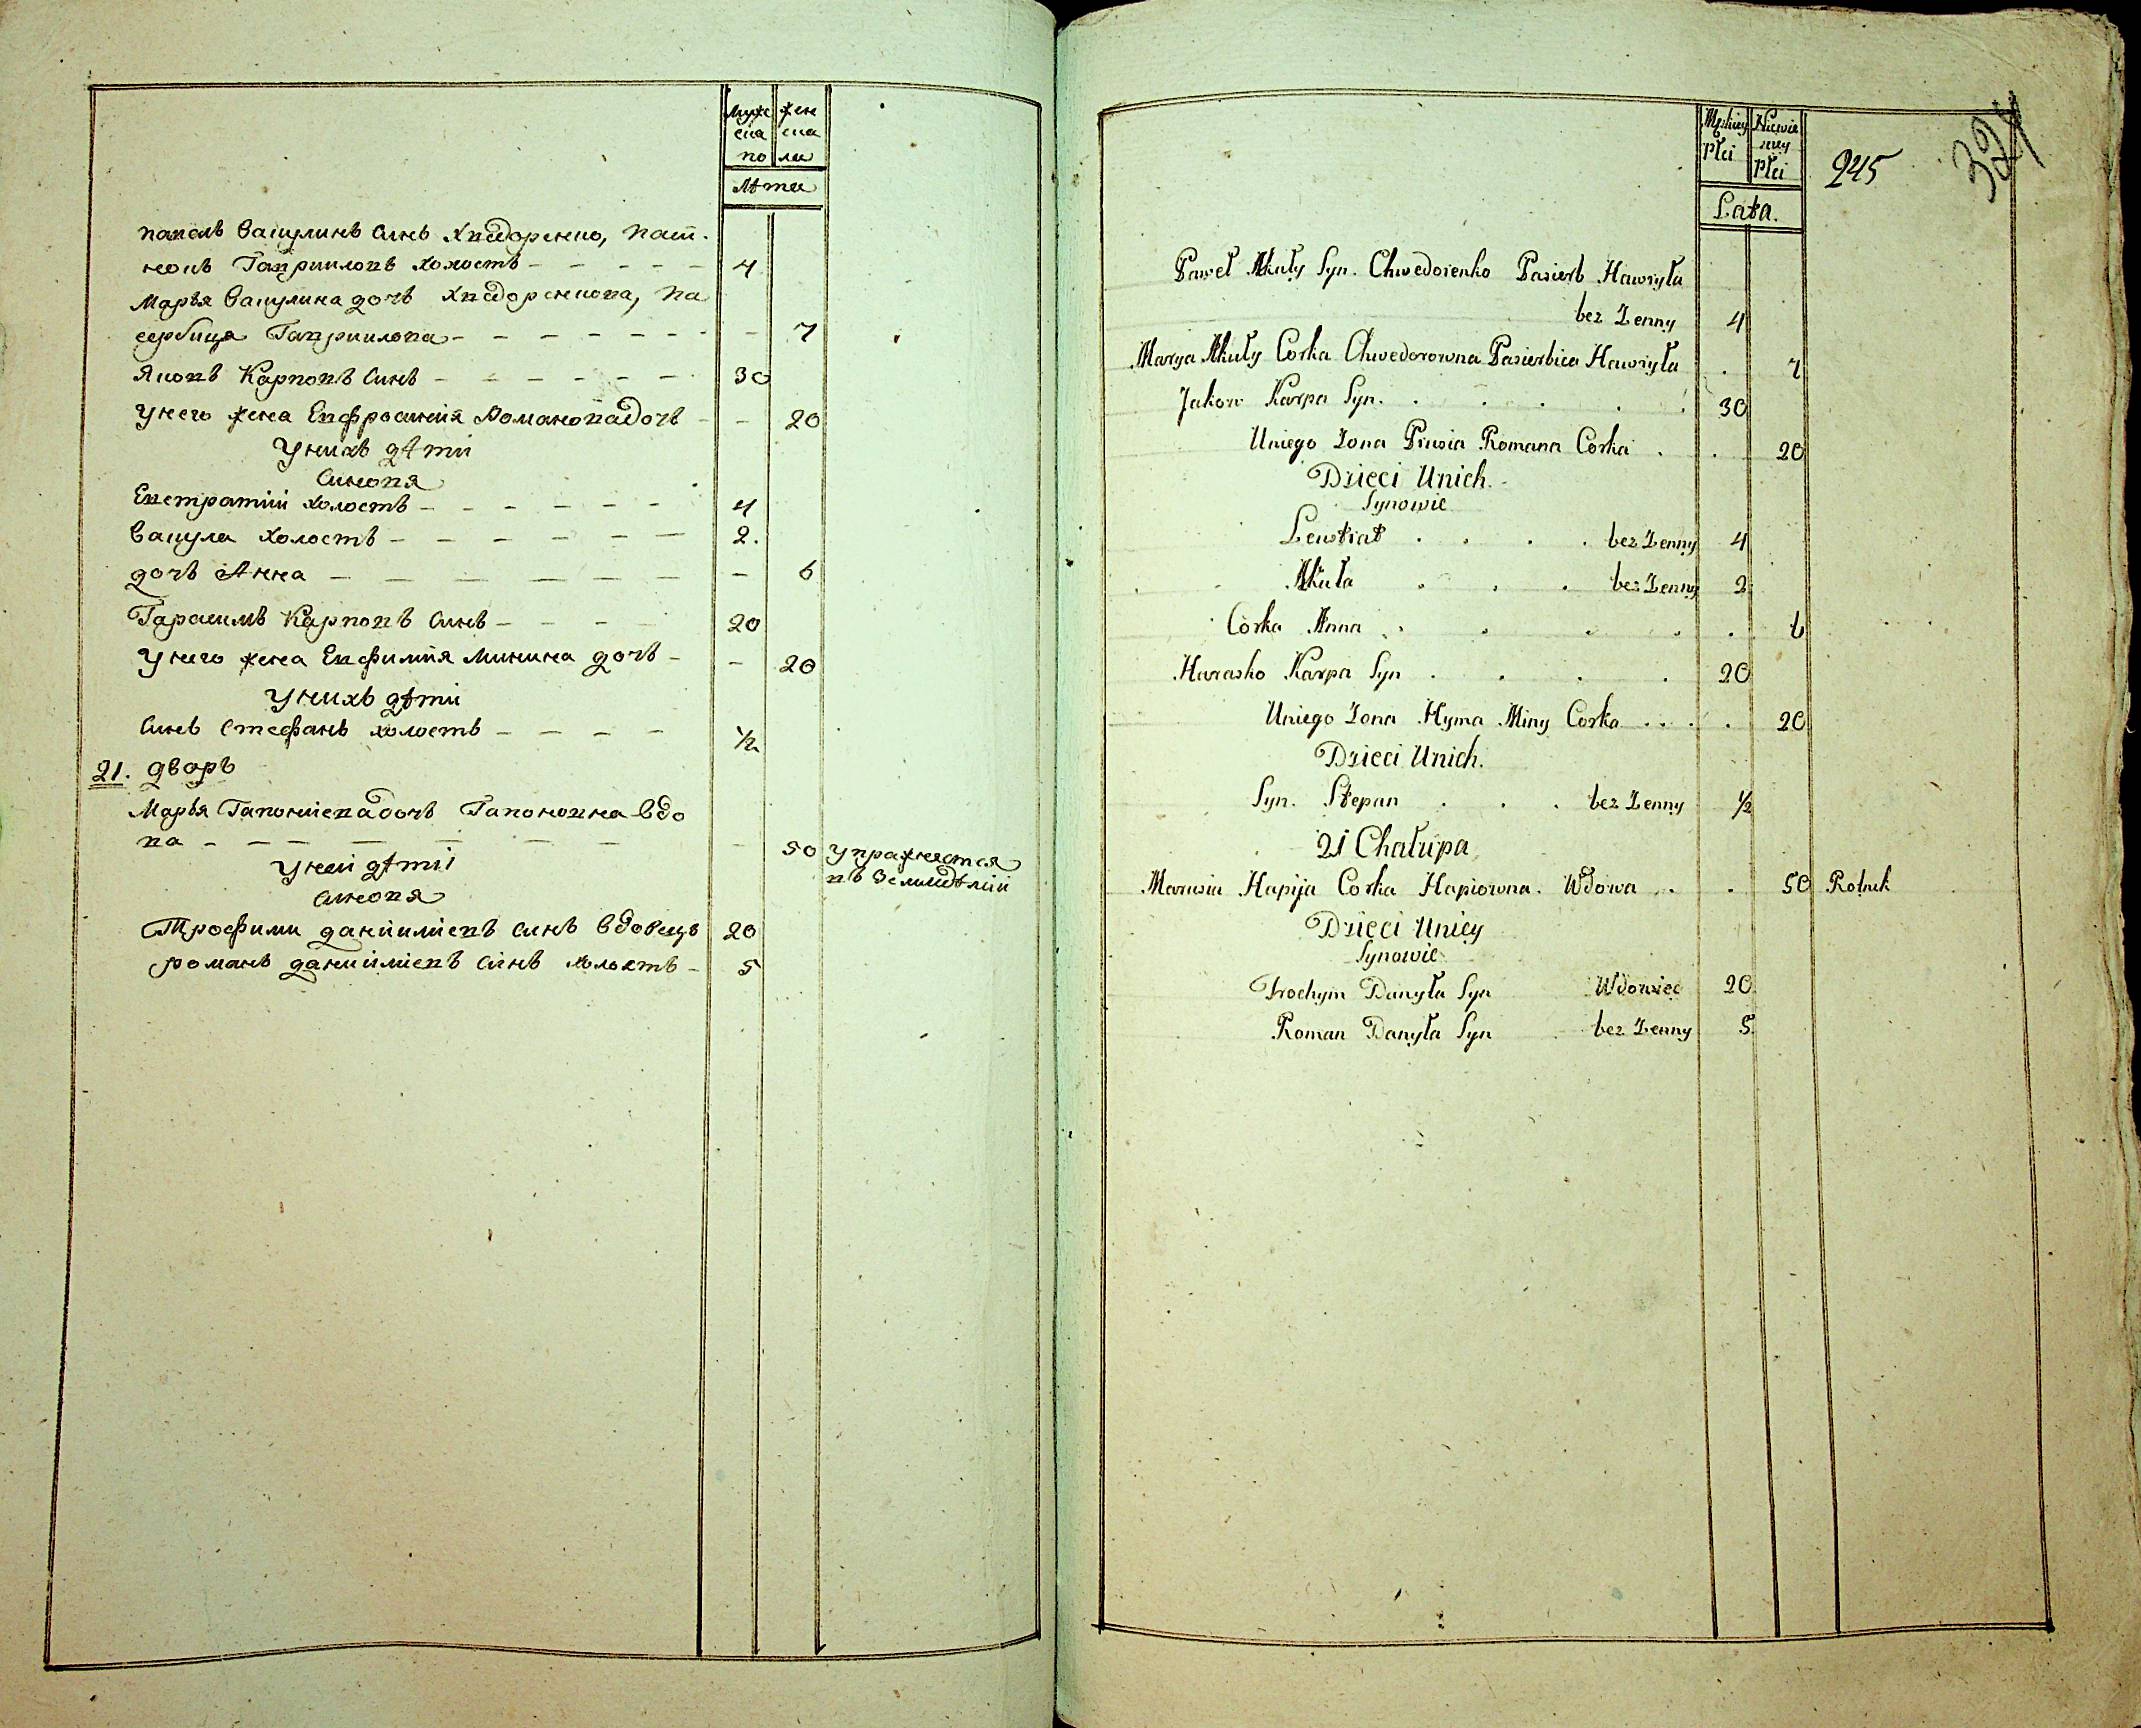 Муже
ска
по
жен
ска
ли
Лѣта
павелъ Вакулинъ Синъ Хведоренко, паст.
нокъ Гавриловъ холостъ – – – – – 4
Марья Вакулина дочь Хведоренкова, па
сербица Гаврилова – – – – – – – – 7
Яковъ Карповъ Синъ – – – – – – 30
У него жена Евфросинія Романова дочь – – 20
У нихъ дѣти
Синовя
Евстратій холостъ – – – – – – 4
Вакула холостъ – – – – – – 2.
дочь Анна – – – – – – – 6
Гарасимъ Карповъ Синъ – – – – 20
У него жена Евфимія Минина дочь – – 20
У нихъ дѣти
Синъ Стефанъ холостъ – – – – 1/2
21. дворъ
Марья Гапониева дочь Гапоновна вдо
ва – – – – – – – – 50 упражняется
въ Земледѣліи
У ней дѣти
Синовя
Трофими даниилиевъ синъ вдовецъ 20
романъ даниилиевъ синъ холостъ – 5
Męskiey
Płci
Niewie
sciey
Płci
245
324
Lata.
Paweł Akuły Syn. Chwedorenko Pasierb Hawryła
bez Zenny 4
Marya Akuły Corka Chwedorowna Pasierbica Hawryła . 7
Jakow Karpa Syn. . . . . . 30
Uniego Zona Prusia Romana Corka . . 20
Dzieci Unich.
Synowie
Leustrat . . . . bez Zenny 4
Akuła . . . bez Zenny 2
Córka Anna . . . . . 6
Harasko Karpa Syn . . . . 20
Uniego Zona Hyma Miny Corka . . . . 20
Dzieci Unich.
Syn. Stepan . . . bez Zenny 1/2
21 Chałupa
Marusia Hapija Corka Hapiowna. Wdowa . . 50 Rolnik
Dzieci Unięy
Synowie
Trochym Danyła Syn Wdowiec 20
Roman Danyła Syn bez Zenny 5.